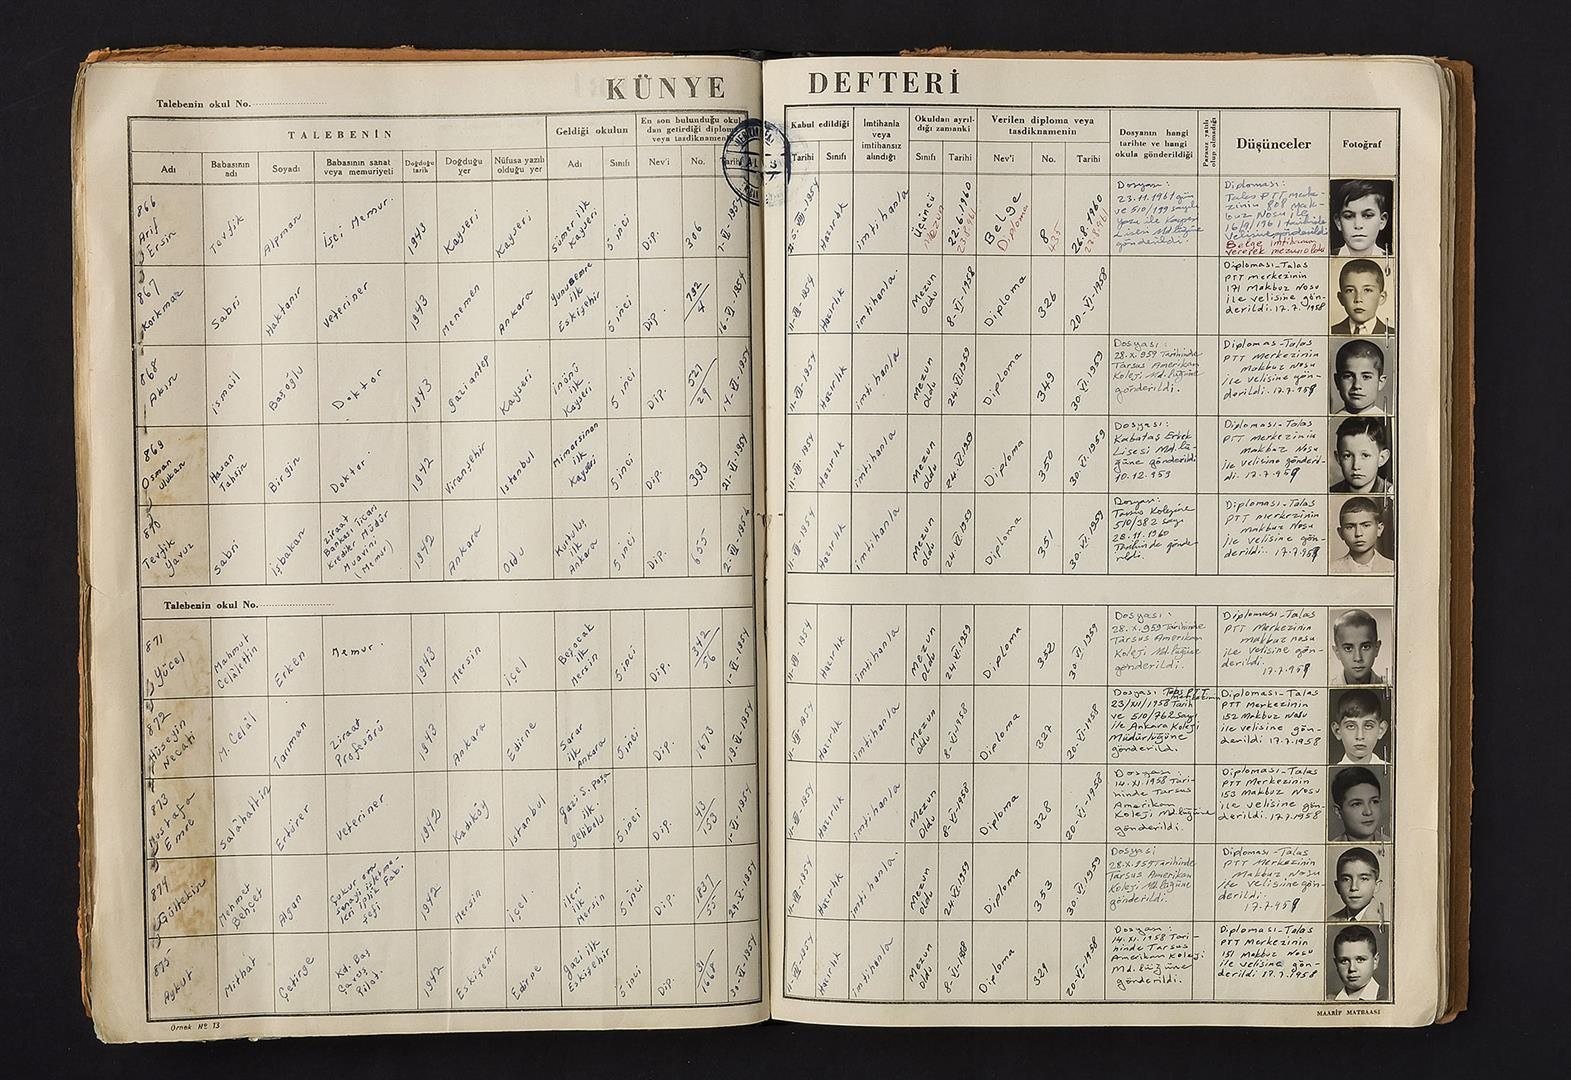 KÜNYE DEFTERİ
Talebenin okul No.
TALEBENİN
Geldiği okulun
En son bulunduğu okul-
dan getirdiği diploma
veya tasdiknamenin
Kabul edildiği
İmtihanla
veya
imtihansız
alındığı
Okuldan ayrıl-
dığı zamanki
Verilen diploma veya
tasdiknamenin
Dosyanın hangi
tarihte ve hangi
okula gönderildiği
Parasız yatılı
olup olmadığı
Düşünceler
Fotoğraf
Adı
Babasının
adı
Soyadı
Babasının sanat
veya memuriyeti
Doğduğu
tarih
Doğduğu
yer
Nüfusa yazılı
olduğu yer
Adı
Sınıfı
Nev'i
No.
Tarihi
Tarihi
Sınıfı
Sınıfı
Tarihi
Nev'i
No.
Tarihi
866
Arif
Ersin
Tevfik
Alpman
İşçi Memur.
1943
Kayseri
Kayseri
Sümer ilk
Kayseri
5 inci
Dip.
306
Hazırlık
imtihanla
Üçüncü
Mezun
22.6.1960
Belge
Diploma
8
26.8.1960
Dosyası:
23.11.1961 gün
ve 510/199 sayılı
yazı ile Kayseri
Lisesi Md.lüğüne
gönderildi.
Diploması:
Talas PTT merke-
zinin 808 mak-
buz Nosu ile
velisine gönderildi
Belge imtihanını
vererek mezun oldu
867
Korkmaz
Sabri
Haktanır
Veteriner
1943
Menemen
Ankara
Yunusemre
ilk
Eskişehir
5 inci
Dip.
792
4
16-VI-1954
11-VIII-1954
Hazırlık
imtihanla.
Mezun
oldu
8-VI-1958
Diploma
326
20-VI-1958
Diploması-Talas
PTT merkezinin
171 Makbuz Nosu
ile velisine gön-
derildi. 17.7.1958
868
Akın
ismail
Başoğlu
Doktor
1943
Gaziantep
Kayseri
inönü
ilk
Kayseri
5 inci
Dip.
521
29
14-VI-1954
11-VIII-1954
Hazırlık
imtihanla
Mezun
oldu
24.VI.1959
Diploma
349
30.VI.1959
Dosyası:
28.X.959 Tarihinde
Tarsus Amerikan
Koleji Md.lüğüne
gönderildi.
Diploması-Talas
PTT Merkezinin
Makbuz Nosu
ile velisine gön-
derildi. 17.7.959
869
Osman
uluhan
Hasan
Tahsin
Birgin
Doktor.
1942
Viranşehir
istanbul
Mimarsinan
ilk
Kayseri
5 inci
Dip.
393
21-VI-1954
11-VIII-1954
Hazırlık
imtihanla
Mezun
oldu
24.VI.1959
Diploma
350
30.VI.1959
Dosyası:
Kabataş Erkek
Lisesi Md.lü-
ğüne gönderildi
10.12.959
Diploması-Talas
PTT Merkezinin
Makbuz Nosu
ile velisine gönderil-
di. 17.7.959
870
Tevfik
Yavuz
Sabri
işbakan
Ziraat
Bankası Ticari
Krediler Müdür
Muavini
(Memur)
1942
Ankara
Ordu
Kurtuluş
ilk
Ankara
5 inci
Dip.
655
2-VI-1954
11-VIII-1954
Hazırlık
imtihanla
Mezun
oldu
24.VI.1959
Diploma
351
30.VI.1959
Dosyası:
Tarsus Kolejine
510/382 sayı
28.11.1960
Tarihinde gönde-
rildi.
Diploması-Talas
PTT merkezinin
makbuz Nosu
ile velisine gön-
derildi. 17.7.959
Talebenin okul No.
871
Yücel
Mahmut
Celâlettin
Erken
Memur.
1943
Mersin
içel
Beşocak
ilk
Mersin
5 inci
Dip.
342
56
1-VI-1954
11-VIII-1954
Hazırlık
imtihanla
Mezun
oldu
24.VI.1959
Diploma
352
30.VI.1959
Dosyası:
28.X.959 Tarihinde
Tarsus Amerikan
Koleji Md.lüğüne
gönderildi.
Diploması-Talas
PTT Merkezinin
makbuz nosu
ile velisine gön-
derildi.
17.7.959
872
Hüseyin
Necati
M. Celâl
Tarıman
Ziraat
Profesörü
1943
Ankara
Edirne
Sarar
ilk
Ankara
5 inci
Dip.
1673
19-VI-1954
11-VIII-1954
Hazırlık
imtihanla
Mezun
oldu
8-VI-1958
Diploma
327
20-VI-1958
Dosyası Talas PTT
23/XII/1958 Tarih
ve 510/762 sayı
ile Ankara Koleji
Müdürlüğüne
gönderild.
Diploması-Talas
PTT Merkezinin
152 Makbuz Nosu
ile velisine gön-
derildi 17.7.1958
873
Mustafa
Emre
Salâhattin
Ertürer
Veteriner
1942
Kadıköy
istanbul
Gazi S. Paşa
ilk.
Gelibolu
5 inci
Dip.
43
153
1-VI-1954
11-VIII-1954
Hazırlık
imtihanla
Mezun
oldu
8-VI-1958
Diploma
328
20-VI-1958
Dosyası
14.XI.1958 Tari-
hinde Tarsus
Amerikan
Koleji Md.lüğüne
gönderildi.
Diploması-Talas
PTT Merkezinin
153 Makbuz Nosu
ile velisine gön-
derildi. 17.7.1958
874
Gültekin
Mehmet
Behçet
Algan
1942
Mersin
içel.
ileri
ilk
Mersin
5 inci
Dip.
1837
55
29-V-1954
11-VIII-1954
Hazırlık
imtihanla.
Mezun
oldu
24.VI.1959
Diploma
353
30.VI.1959
Dosyası
28.X.959 Tarihinde
Tarsus Amerikan
Koleji Md.lüğüne
gönderildi.
Diploması-Talas
PTT Merkezinin
Makbuz Nosu
ile velisine gön-
derildi.
17.7.959
875
Aykut
Mithat
Çetirge
Kd. Baş
Çavuş
Pilot.
1942
Eskişehir
Edirne
Gazi ilk
Eskişehir
5 inci
Dip.
31
1668
30-VI-1954
11-VIII-1954
Hazırlık
imtihanla
Mezun
oldu
8-VI-1958
Diploma
329
20-VI-1958
Dosyası:
14.XI.1958 Tari-
hinde Tarsus
Amerikan Koleji
Md.lüğüne
gönderildi.
Diploması-Talas
PTT Merkezinin
151 Makbuz Nosu
ile velisine gön-
derildi 17.7.1958
Örnek No 13
MAARİF MATBAASI